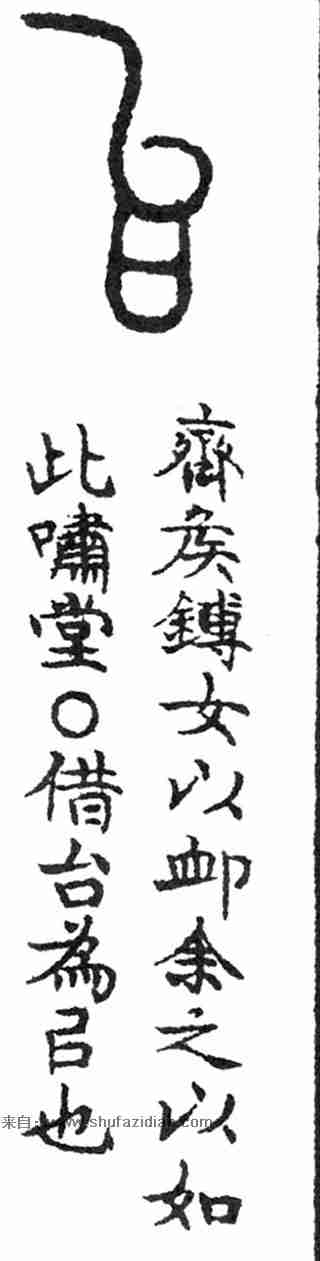 齊矦鎛女以卹余之以如
此嘯堂〇借台為㠯也
来自：www.shufazidian.com